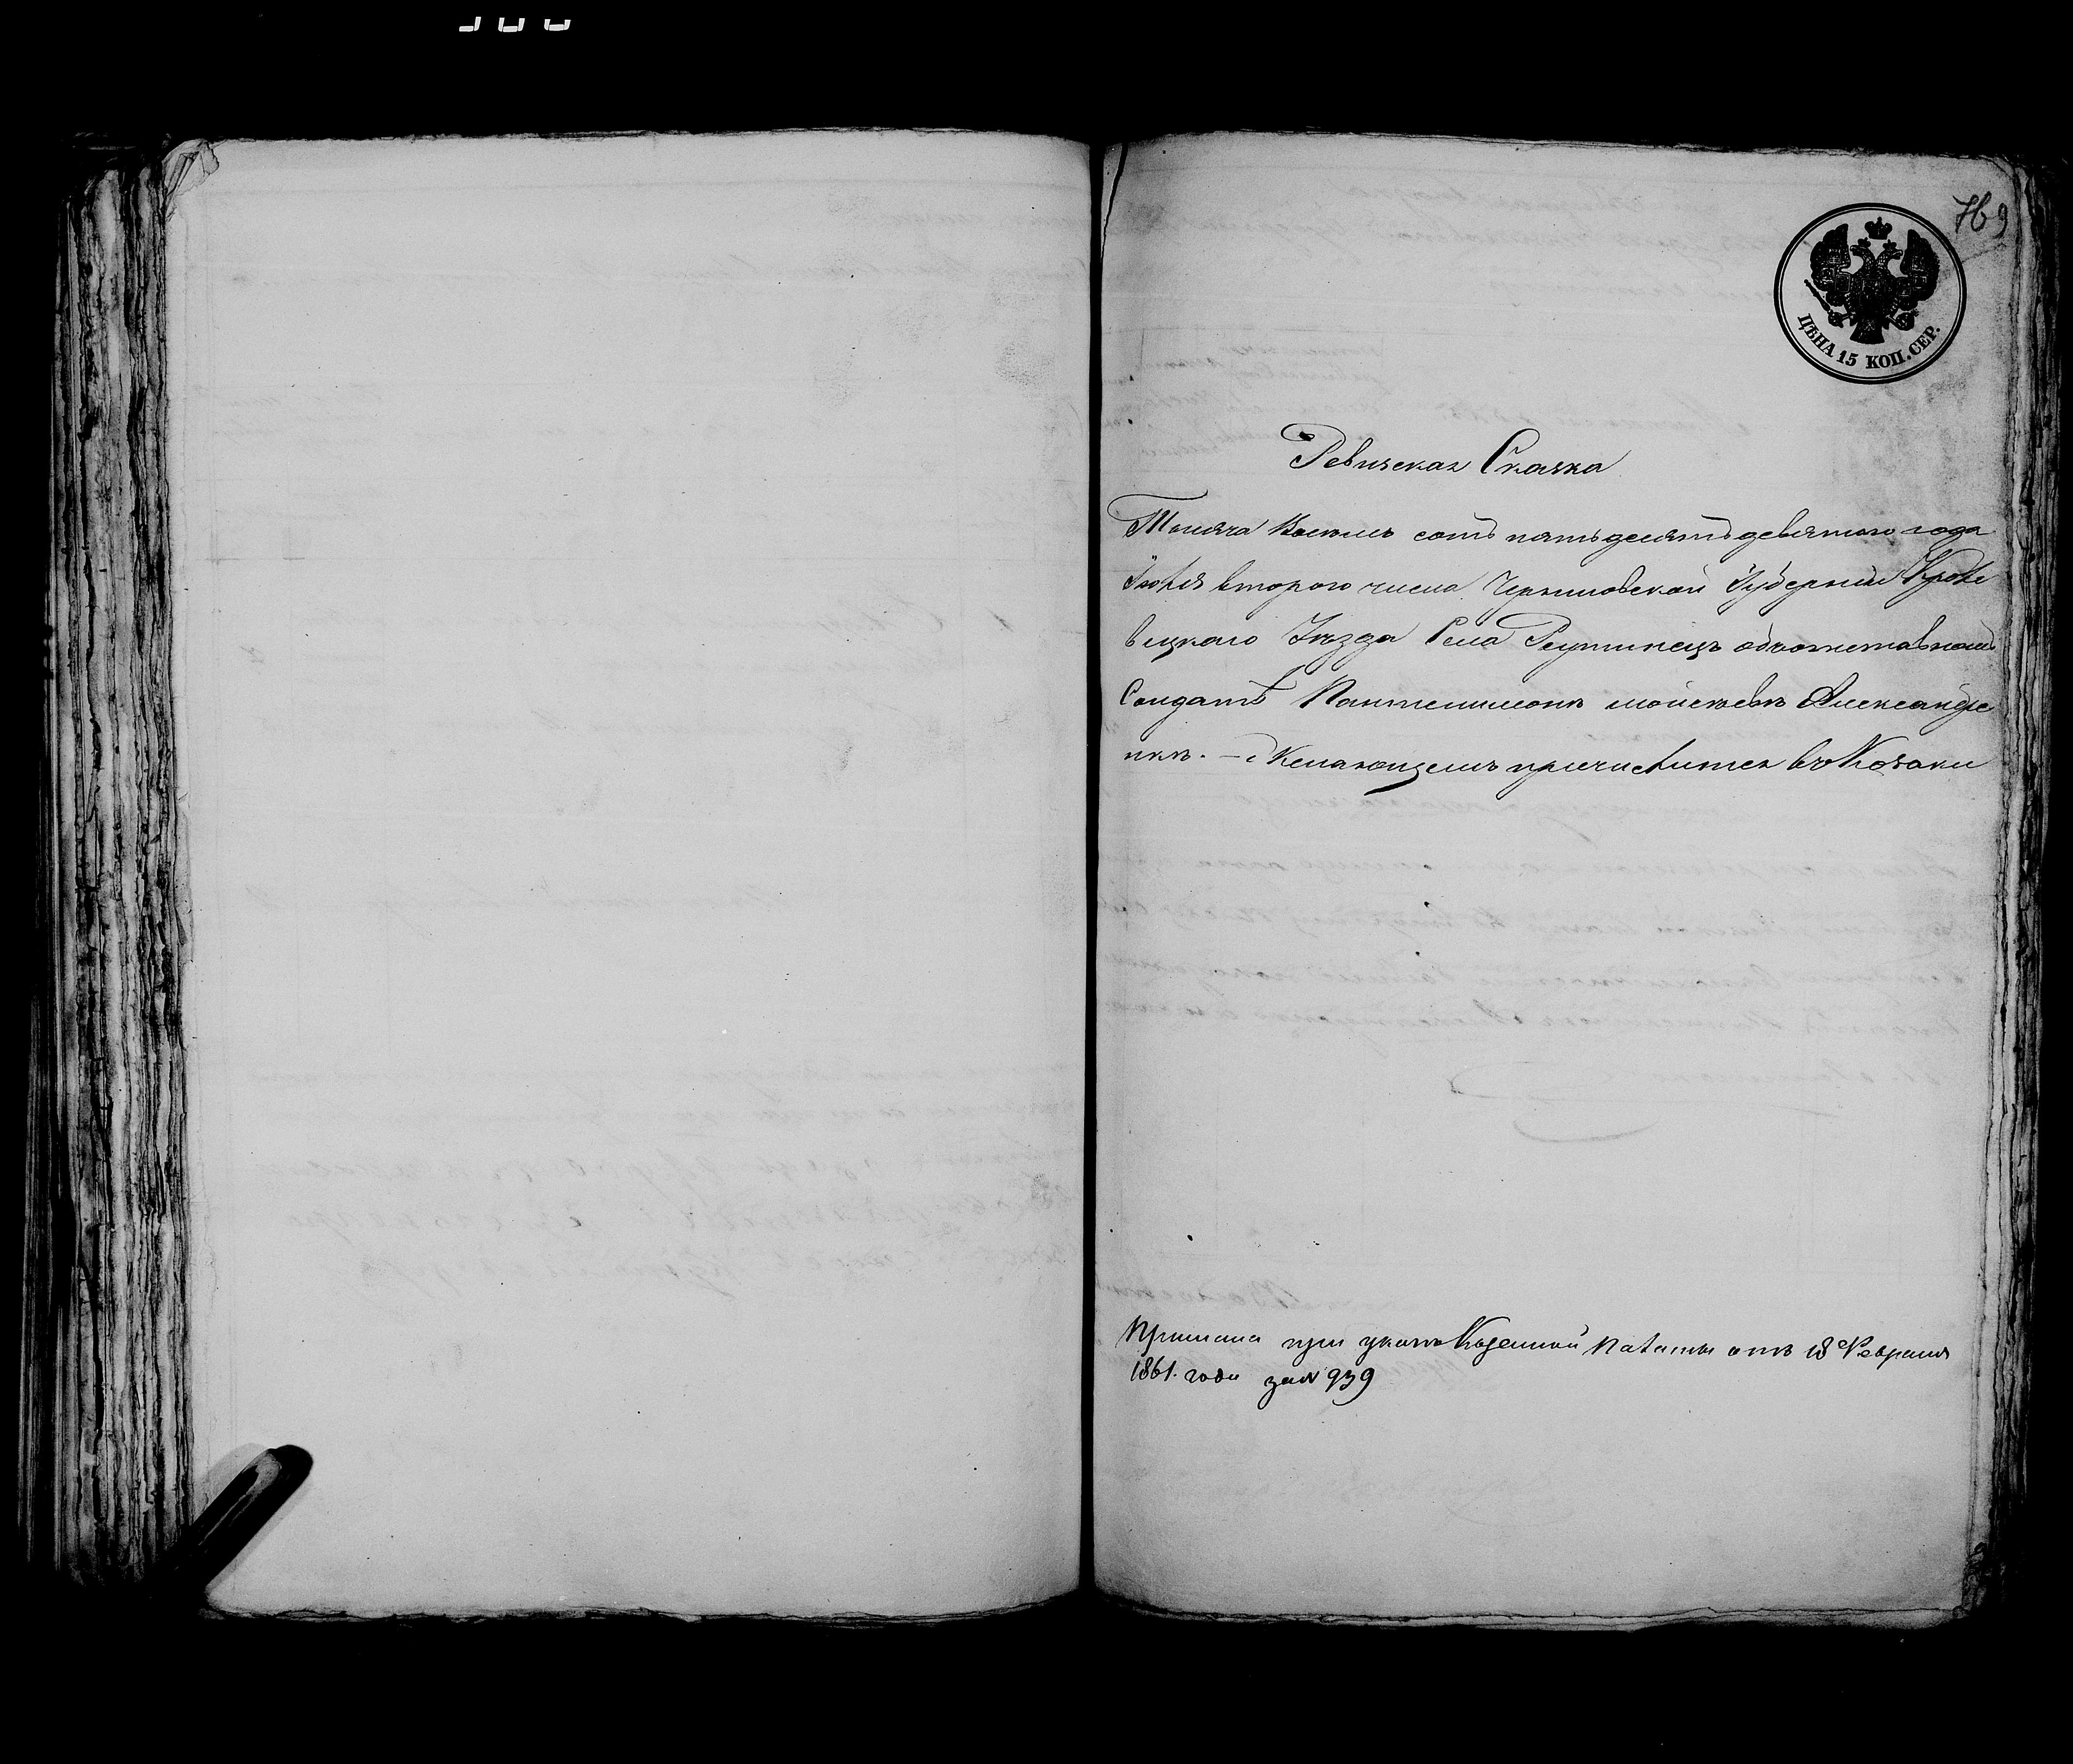 769
ЦѢНА 15 КОП. СЕР.
Ревизская Сказка
Тысяча Восемь сотъ пятьдесятъ девятого года
Іюля второго числа Черниговской Губерніи Кроле
вецкаго Уѣзда Села Реутинецъ объ отставномъ
Солдатѣ Пантелимонѣ Мойсеевѣ Александре
нкѣ. — Желающемъ причислится въ Козаки
Прислана при указѣ Казенной Палаты отъ 18 Февраля
1861. года за № 939